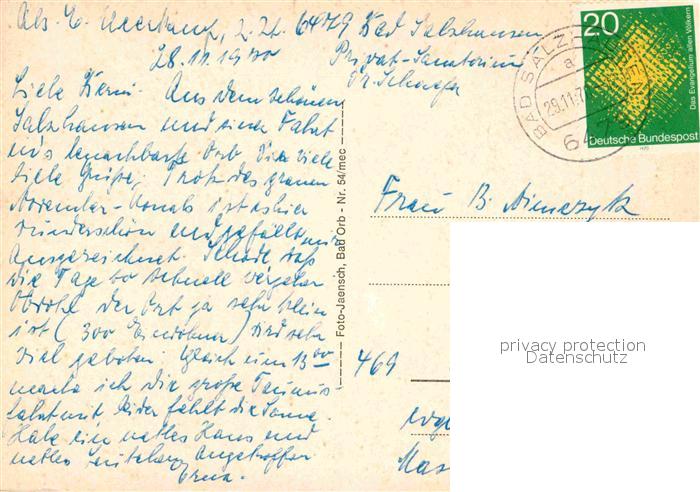 Abs. E. 2. Zt. 6479 Bad Salzhausen
28.11.1970 Privat-Sanatorium
Dr. Schaefer
Liebe Aus dem schönen
Salzhausen und einer Fahrt
ins benachbarte Orb viele
liebe Grüße. Trotz des grauen
November-Monats ist es hier
wunderschön und gefällt mir
ausgezeichnet. Schade daß
die Tage so schnell vergehen
Obwohl der Ort ja sehr klein
ist (300 Einwohner) wird sehr
viel geboten. Gleich um 13 00
mache ich die große Taunus-
fahrt mit leider fehlt die Sonne.
Habe ein nettes Haus und
nettes angetroffen
Foto-Jaensch, Bad Orb - Nr. 54/mec
20
Das Evangelium allen Völkern
Deutsche Bundespost
1970
BAD SALZHAUSEN
a
29.11.70
647
Frau B.
privacy protection
Datenschutz
469